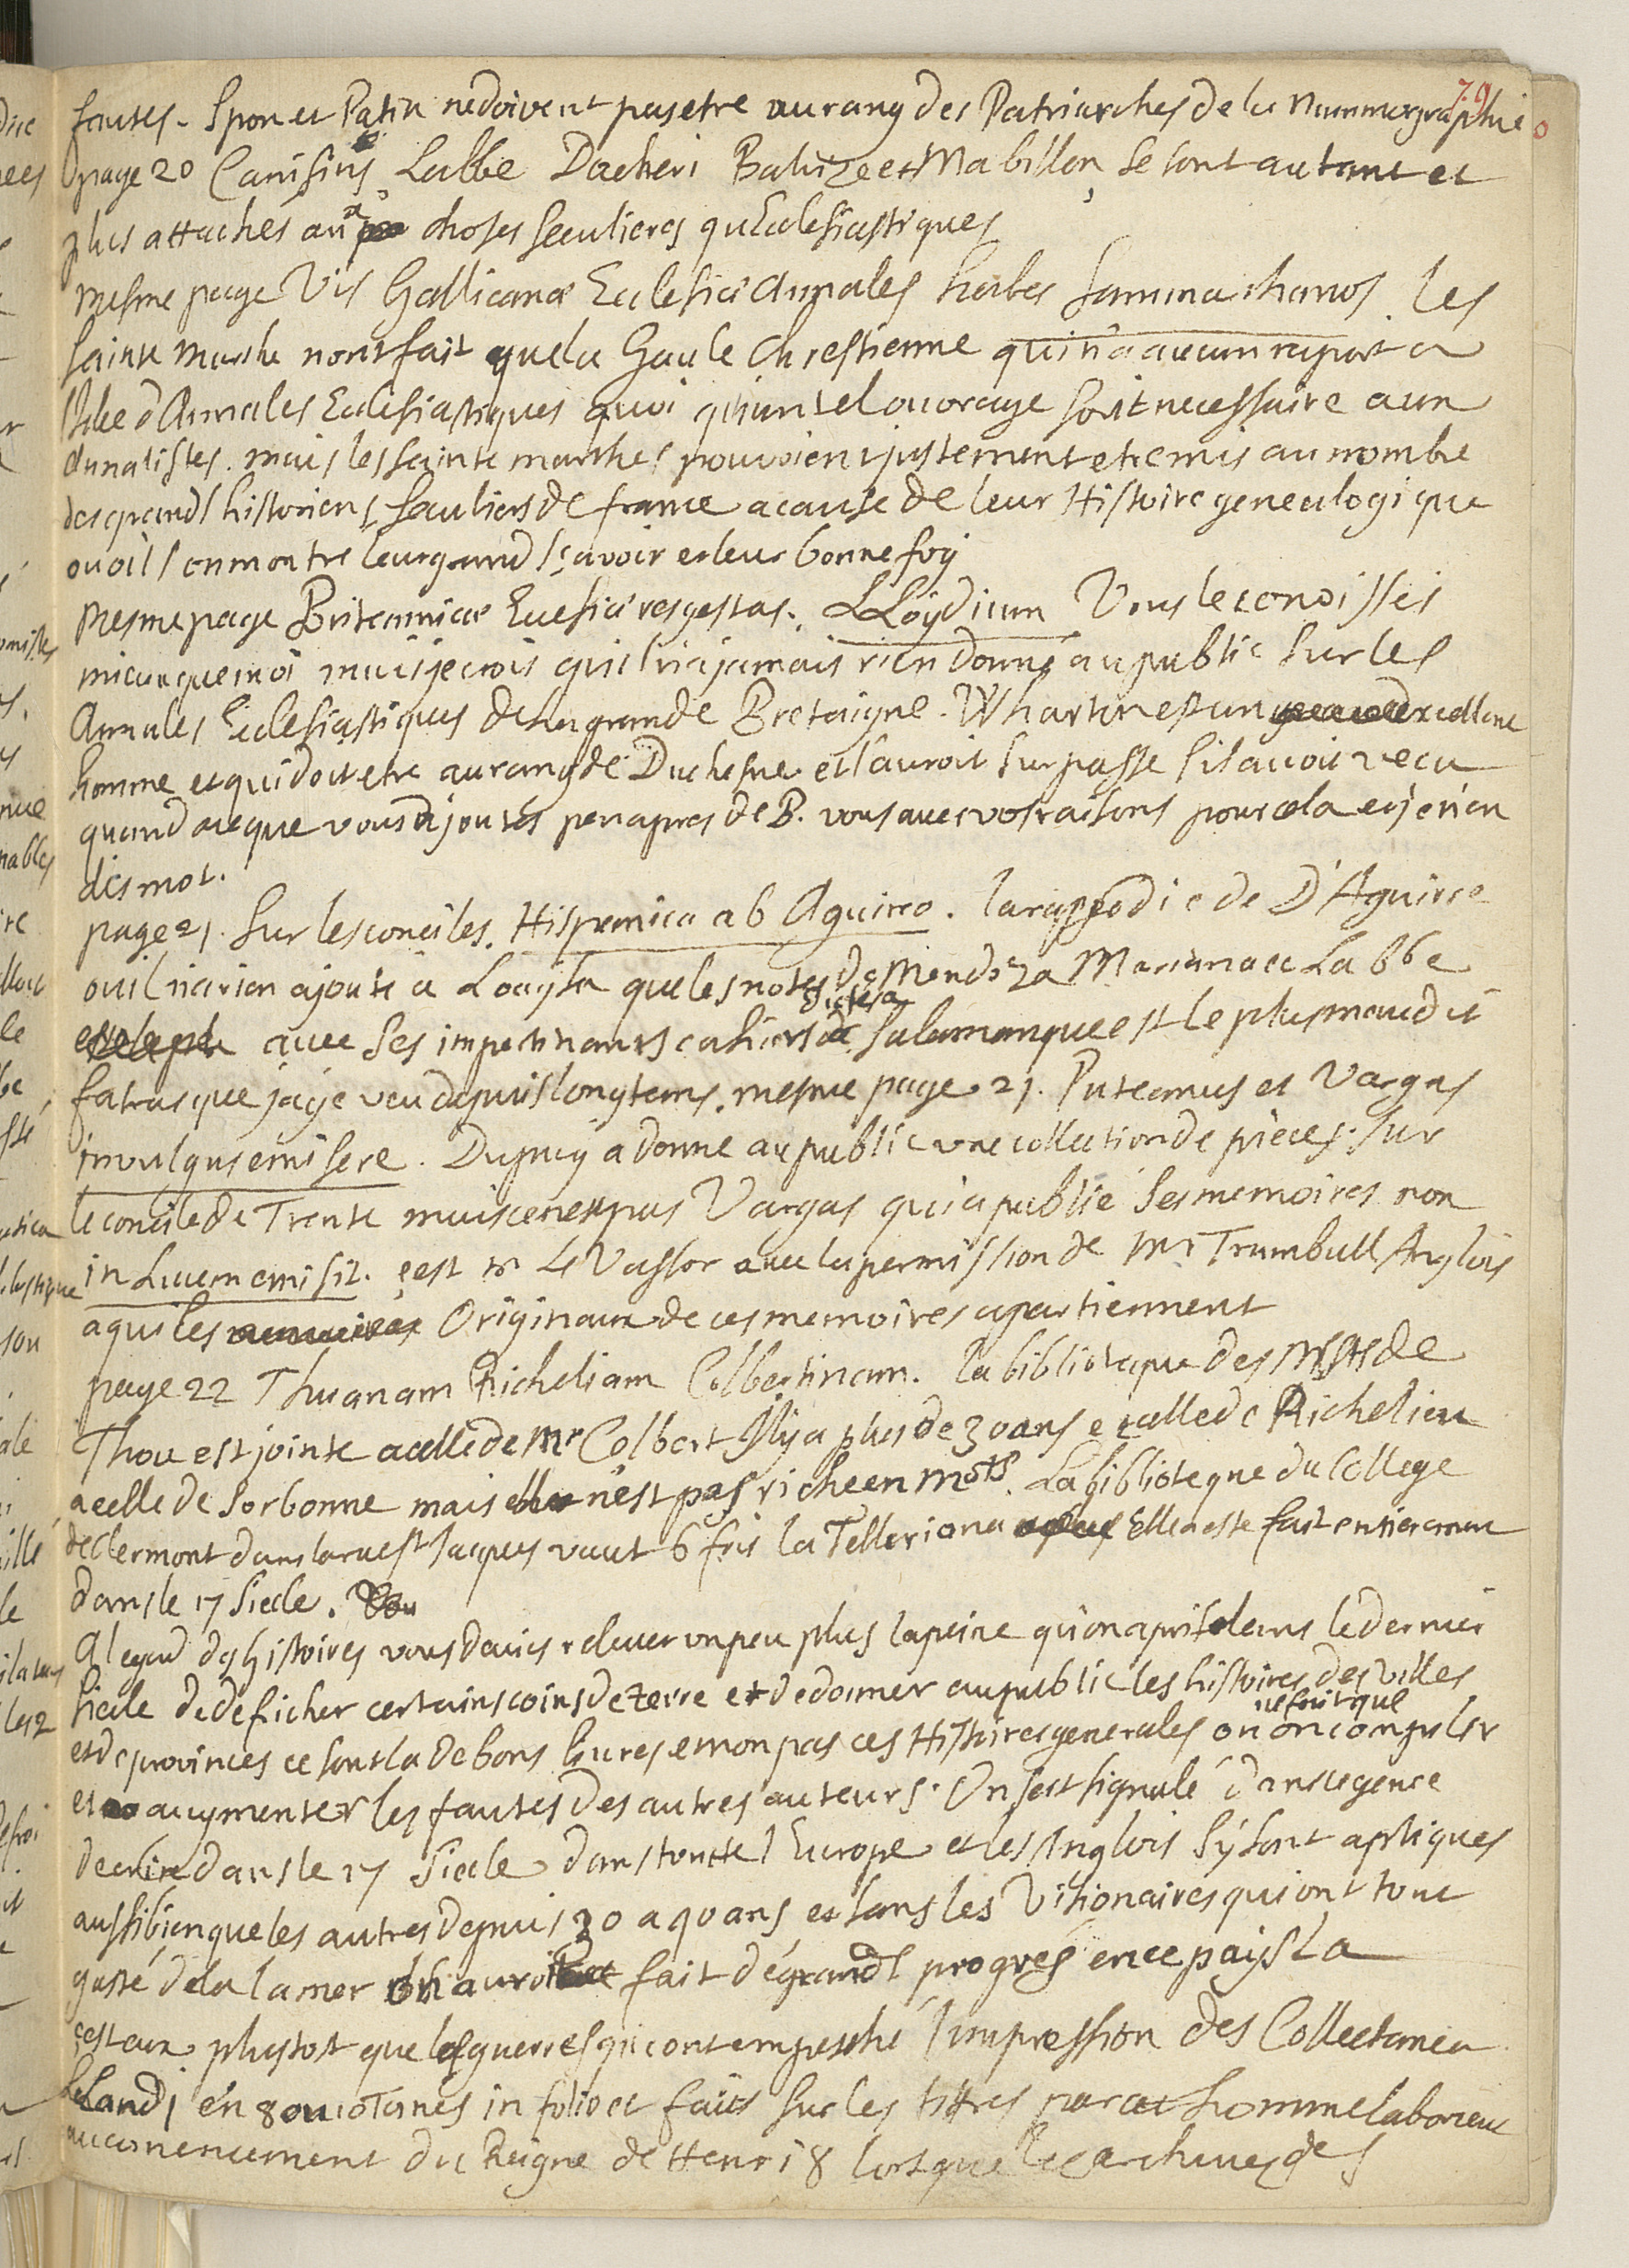 fautes. Spon et Patin ne doivent pas etre au rang des Patriarches de la Nummographie
page 20 Canisius Labbe Dacheri Baluze et Mabillon se sont autant et
plus attachés aux choses seculieres qu'Eclesiastiques
mesme page Vis Gallicanæ Eclesiæ Annales habes Sammarthanos. les
sainte Marthe n'ont fait que la Gaule Chrestienne qui n'a aucun raport a
l'Idee d'Annales Eclesiastiques quoi qu'un tel ouvrage soit necessaire a un
Annalistes. mais les sainte marthes pouvoient justement etre mis au nombre
des grands historiens seculiers de france a cause de leur Histoire genealogique
ou ils on montre leur grand sçavoir et leur bonne foy
Mesme page Britannicæ Eclesiæ res gestas. LLoydium Vous le conoisses
mieux que moi mais je crois qu'il n'a jamais rien donné au public sur les
Annales Eclesiastiques de la grande Bretaigne. Wharton est un excellent
homme et qui doit etre au rang de Duchesne et l'auroit surpasse s'il avoit vecu
quand a ce que vous ajoutés peu apres de B. vous aves vos raisons pour cela et je n'en
dis mot.
page 21. sur les conciles. Hispanica ab Aguirro. la rapsodie de D'Aguirre
ou il n'a rien ajouté a Loaysa que les notes de Mendoza Mariana et Labbe
avec ses impertinants cahiers dictés a Salamanque est le plus maudit
fatras que j'aye veu depuis longtems. mesme page 21. Puteanus et Vargas
in vulgus emisere. Dupuy a donne au public une collection de pieces sur
le concile de Trente mais ce n'est pas Vargas qui a publié ses memoires non
in Lucem emisit. c'est mr Le Vassor avec la permission de Mr Trumbull Anglois
a qui les Originaux de ces memoires apartiennent
page 22 Thuanam Richeliam Colbertinam. la biblioteque des Msts de
Thou est jointe a celle de Mr Colbert Il y a plus de 30 ans et celle de Richelieu
a celle de Sorbonne mais elle n'est pas riche en Msts. La biblioteque du College
de Clermont dans la rue st Jaques vaut 6 fois la Telleriana Elle a este fait entierement
dans le 17 Siecle.
A l'egard des histoires vous devies relever un peu plus la peine qu'on a pris dans le dernier
siecle de deficher certains coins de terre et de donner au public les histoires des villes
et de provinces ce sont la de bons livres et non pas ces Histoires generales ou on ne fait que compiler
et augmenter les fautes des autres auteurs. On s'est signalé dans ce genre
d'ecrire dans le 17 Siecle dans toutte l'Europe et les Anglois s'y sont apliques
aussi bien que les autres depuis 30 a 40 ans et sans les Visionaires qui ont tout
gasté dela la mer on auroit fait de grands progres en ce pays la
c'est eux plustost que les guerres qui ont empesché l'impression des Collectanea
Lelandi en 8 ou 10 Tomes in folio et faits sur les titres par cet homme laborieux
au comencement du Reigne de Henri 8 lorsque les archives des